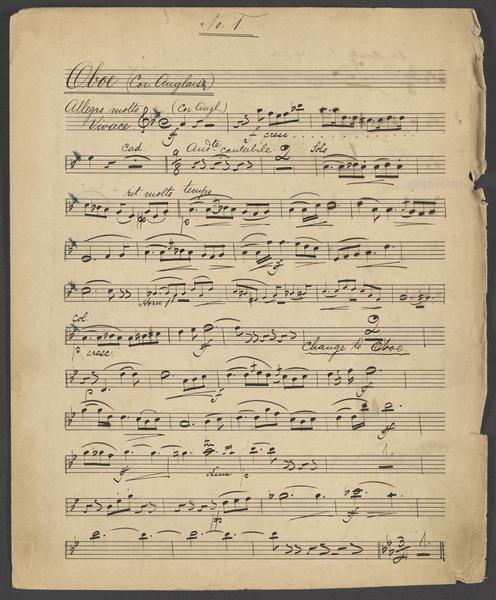 No. 1.
Oboe (Cor. Anglais)
Allegro molto Vivace. (Cor. Angl.)
f f cresc.
cad. Andte cantabile. 2 Solo
9 8
rit molto tempo
pp p
f
Horn
col. 2
p cresc. ff Change to Oboe.
p f ff
ff
tr
ff dim p 1.
pp ff
3 1.